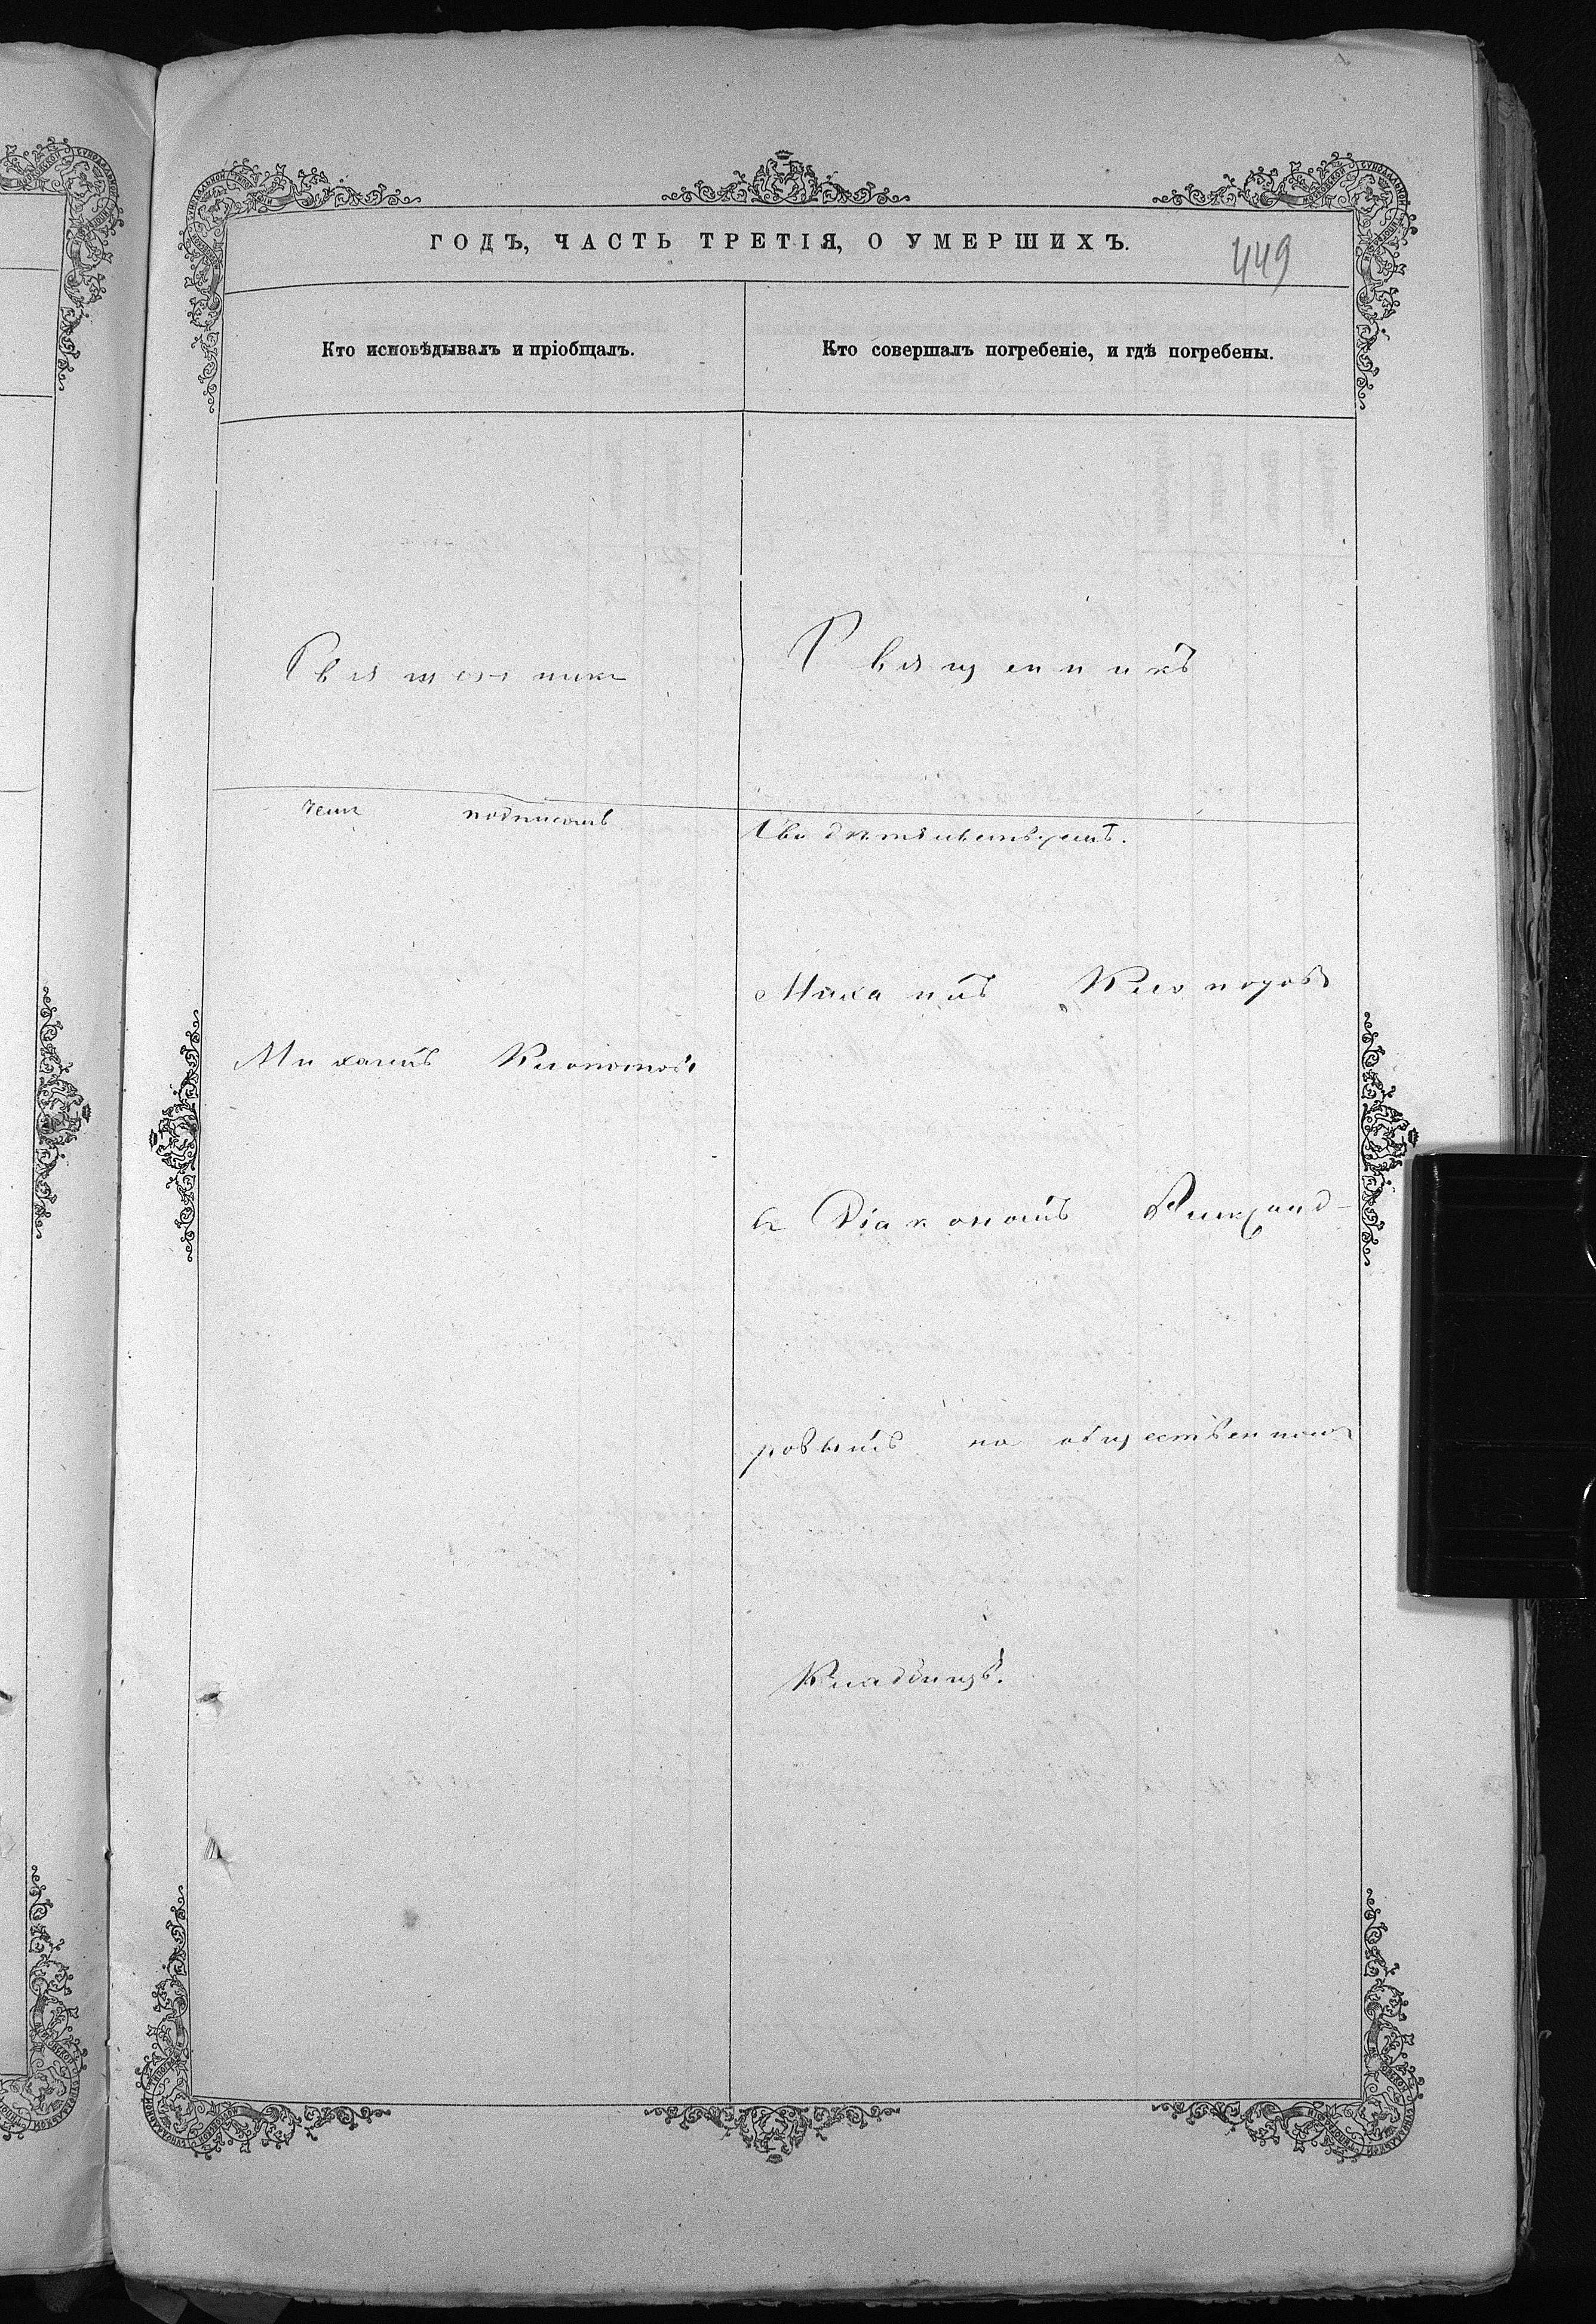 ГОДЪ, ЧАСТЬ ТРЕТІЯ, О УМЕРШИХЪ.
449
Кто исповѣдывалъ и пріобщалъ.
Кто совершалъ погребеніе, и гдѣ погребены.
Священникъ
Священникъ
подписомъ
Свидѣтельствуетъ.
Михаилъ
Михаилъ
съ Діакономъ Александ-
ровымъ на общественномъ
Кладбищѣ.